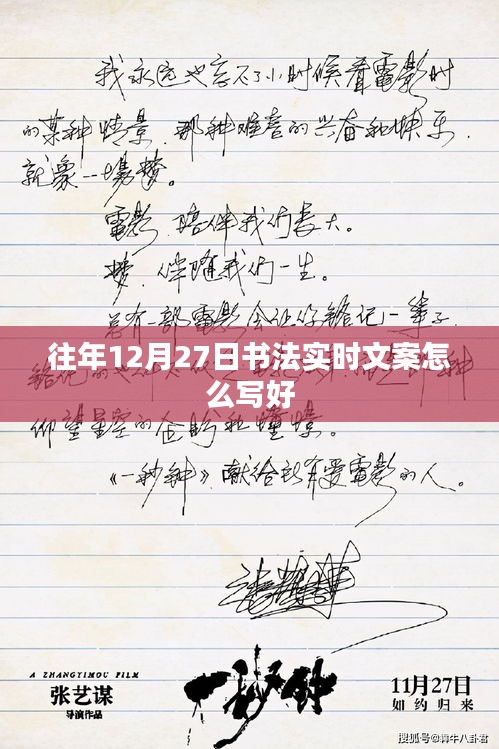 我永远也忘不了小时候看電影时
的某种情景，那种难言的兴奋和快乐，
就象一场梦。
電影，陪伴我们长大。
梦，伴随我们一生。
总有一部電影会让你铭记一辈子，
往年12月27日书法实时文案怎
么写好
铭记的
种
仰望星空的企盼和憧憬。
《一秒钟》献给所有爱電影的人。
A ZHANGYIMOU FILM
张艺谋
导演作品
一秒钟
11月27日
如约归来
搜狐号@犇牛八卦君